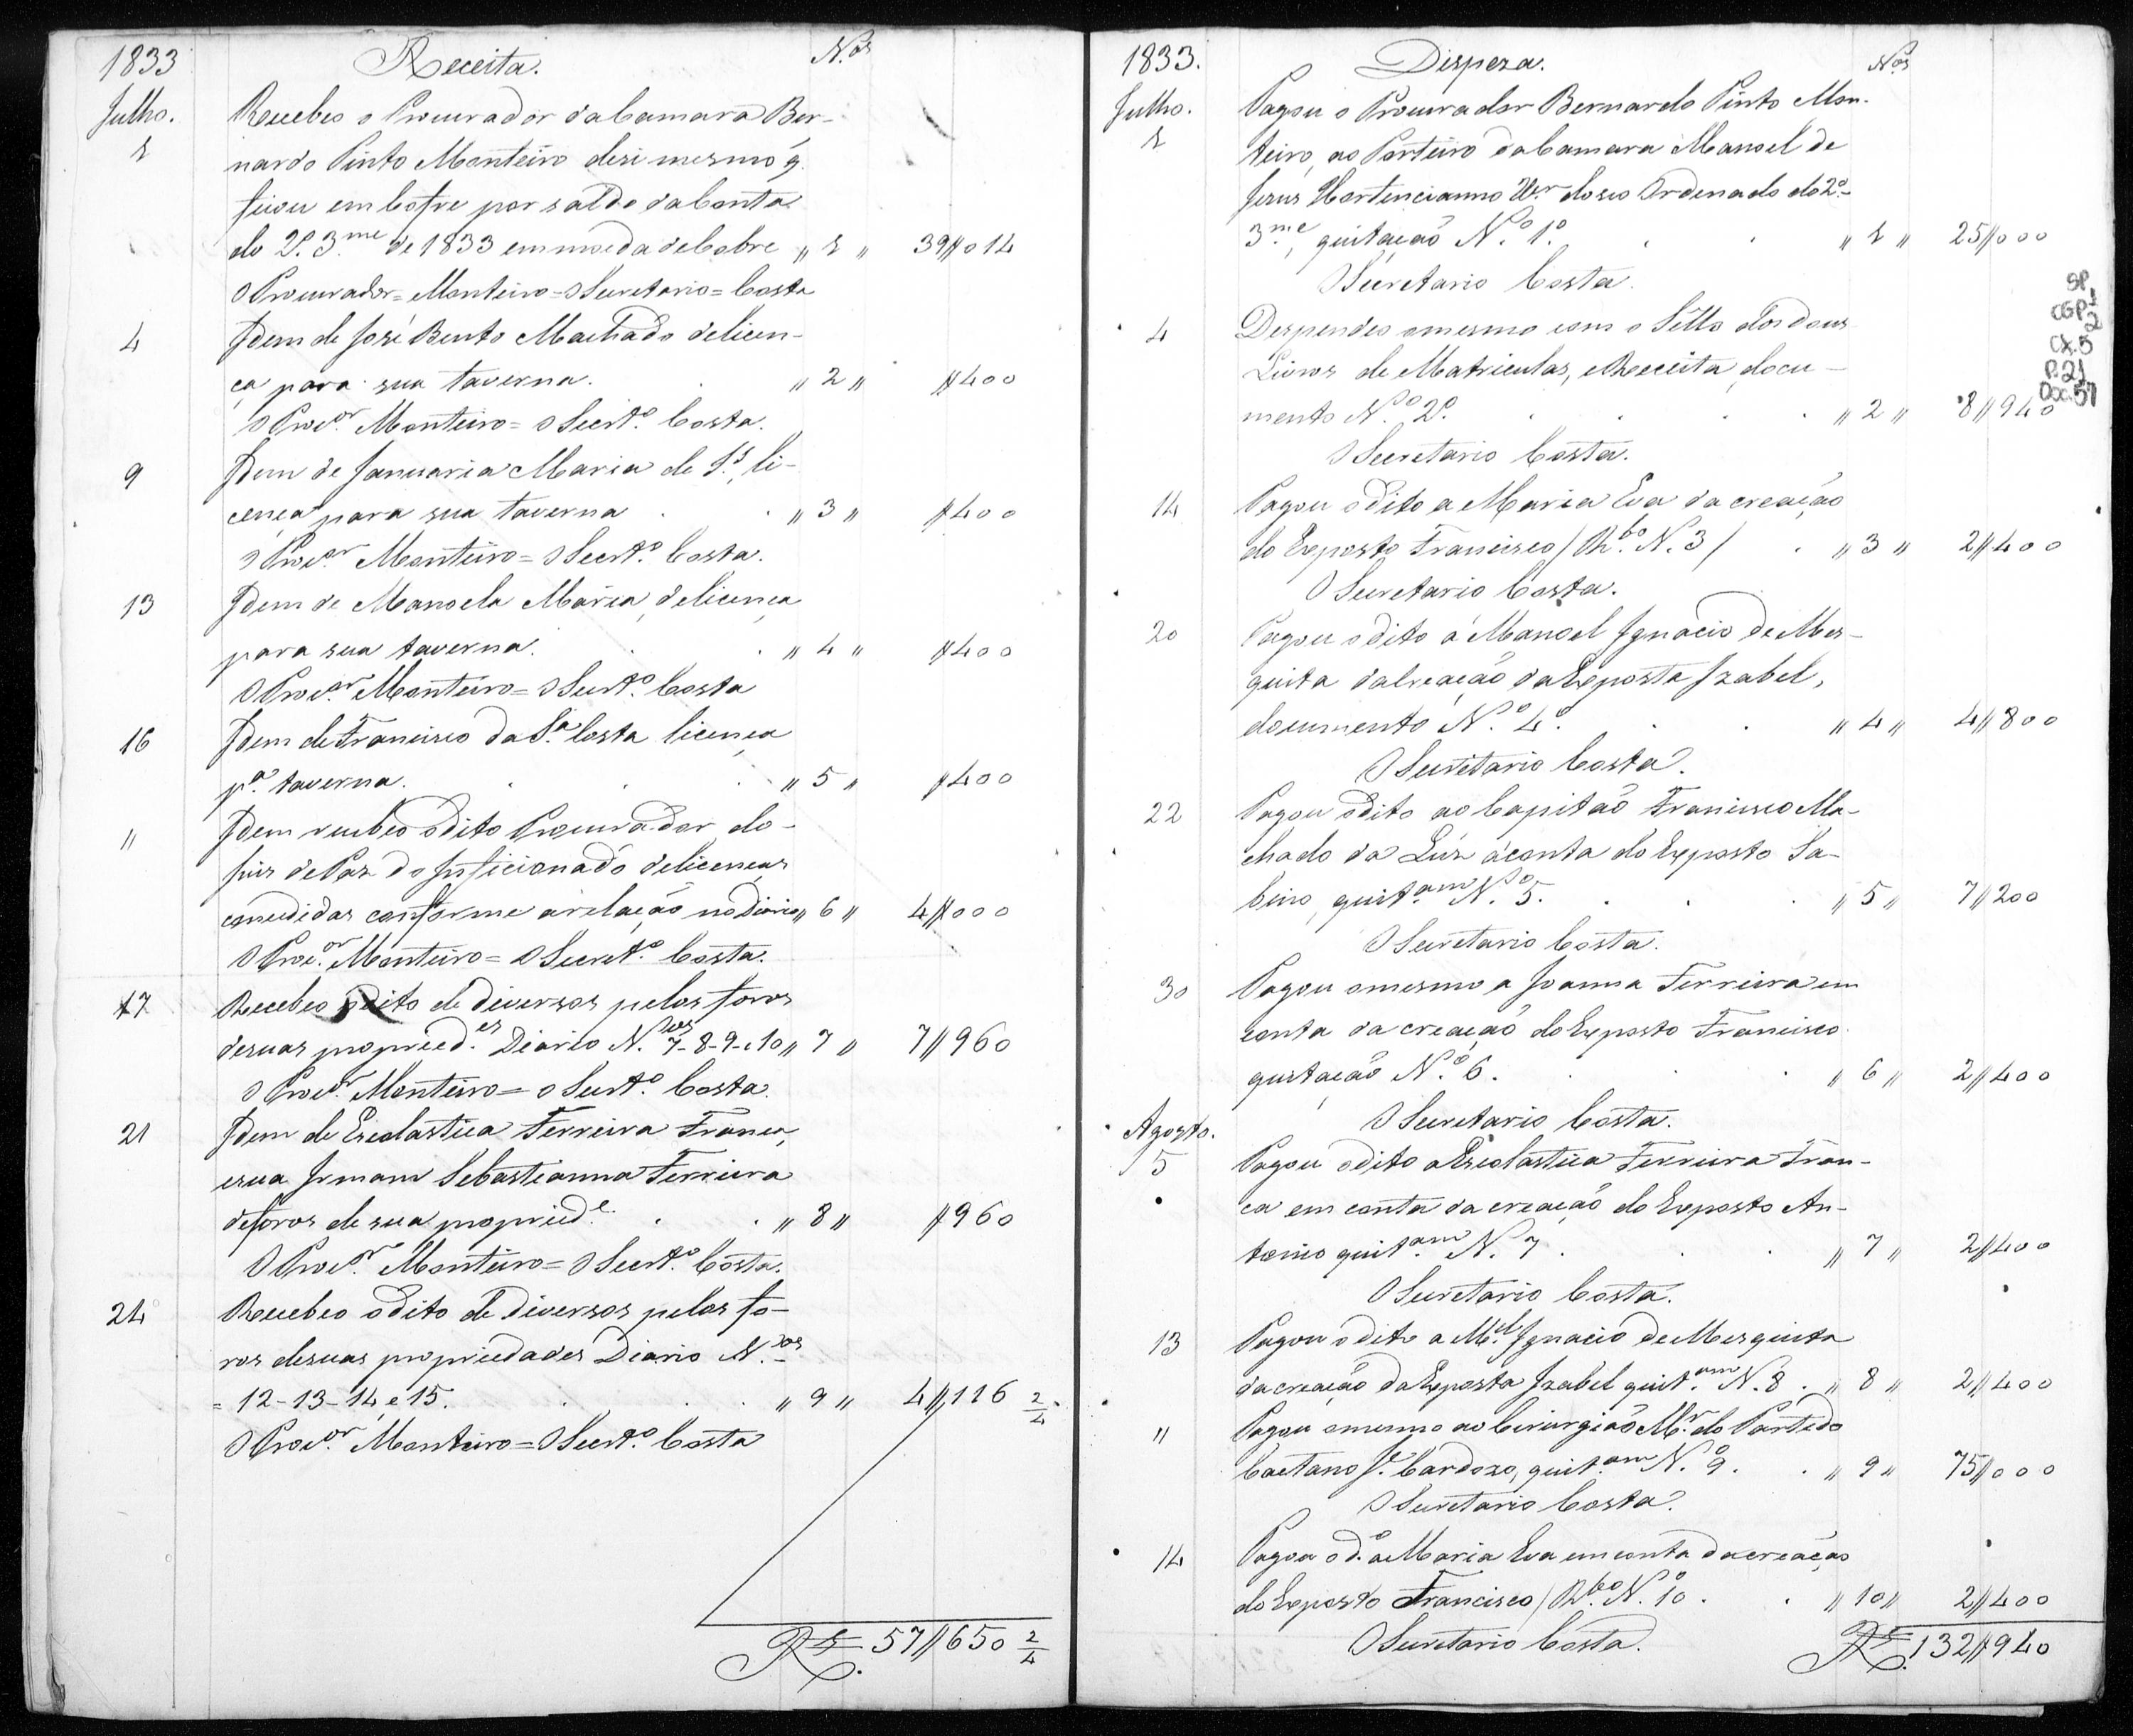 1833 Receita. N.os
Julho. Recebeo o Procurador da Camara Ber-
1 nardo Pinto Monteiro desi mesmo q.
ficou em Cofre por saldo da Conta
do 2.º 3.me de 1833 em moeda de Cobre " 1 " 39//014
O Procurador = Monteiro = O Secretario = Costa
4 Idem de José Bento Machado de licen-
ça para sua taverna. " 2 " //400
O Proc.or Monteiro = O Secrt.o Costa.
9 Idem de Januaria Maria de Js., li-
cença para sua taverna " 3 " //400
O Proc.or Monteiro = O Secrt.o Costa.
13 Idem de Manoela Maria, de licença
para sua taverna. " 4 " //400
O Proc.or Monteiro = O Secrt.o Costa
16 Idem de Francisco da S.a Costa licença
p.a taverna. " 5 " //400
" Idem recebeo o dito Procurador do
Juis de Paz do Inficionado de licenças
concedidas conforme a relação no Diario " 6 " 4//000
O Proc.or Monteiro = O Secret.o Costa.
17 Recebeo o dito de diversos pelos foros
de suas propried.es Diario N.os 7-8-9-e 10 " 7 " 7//960
O Proc.or Monteiro = O Secrt.o Costa.
21 Idem de Escolastica Ferreira Franca,
e sua Irmam Sebastianna Ferreira
de foros de sua propried.e " 8 " //960
O Proc.or Monteiro = O Secrt.o Costa.
24 Recebeo o dito de diversos pelos fo-
ros de suas propriedades Diario N.os
= 12-13-14, e 15. " 9 " 4//116 2/4
O Proc.or Monteiro = O Secrt.o Costa
RS. 57//650 2/4
1833. Dispeza. N.os
Julho. Pagou o Procurador Bernardo Pinto Mon-
1 teiro, ao Porteiro da Camara Manoel de
Jesus Hortencianno do seo Ordenado do 2.º
3.me, quitação N.º 1.º " 1 " 25//000
O Secretario Costa.
SP
CGP 1
2
Cx.5
P.21
Doc.57
4 Despendeo o mesmo com o Sello dos dous
Livros de Matriculas, e Receita, docu-
mento N.º 2.º " 2 " 8//940
O Secretario Costa.
14 Pagou o dito a Maria Eva da creação
do Exposto Francisco / R.bo N. 3 / " 3 " 2//400
O Secretario Costa.
20 Pagou o dito á Manoel Ignacio de Mes-
quita da creação da Exposta Izabel,
documento N.º 4.º " 4 " 4//800
O Secretario Costa.
22 Pagou o dito ao Capitão Francisco Ma-
chado da Luz á conta do Exposto Sa-
bino, quit.am N.º 5. " 5 " 7//200
O Secretario Costa.
30 Pagou o mesmo a Joanna Ferreira em
conta da creação do Exposto Francisco
quitação N.º 6. " 6 " 2//400
O Secretario Costa.
Agosto.
5 Pagou o dito a Escolastica Ferreira Fran-
ca em conta da creação do Exposto An-
tonio quit.am N. 7. " 7 " 2//400
O Secretario Costa.
13 Pagou o dito a M.el Ignacio de Mesquita
da creação da Exposta Izabel quit.am N. 8. " 8 " 2//400
" Pagou o mesmo ao Cirurgião M.r do Partido
Caetano J.e Cardozo, quit.am N.º 9. " 9 " 75//000
O Secretario Costa.
14 Pagou o d.o a Maria Eva em conta da creação
do Exposto Francisco / R.bo N.º 10 " 10 " 2//400
O Secretario Costa. RS. 132//940